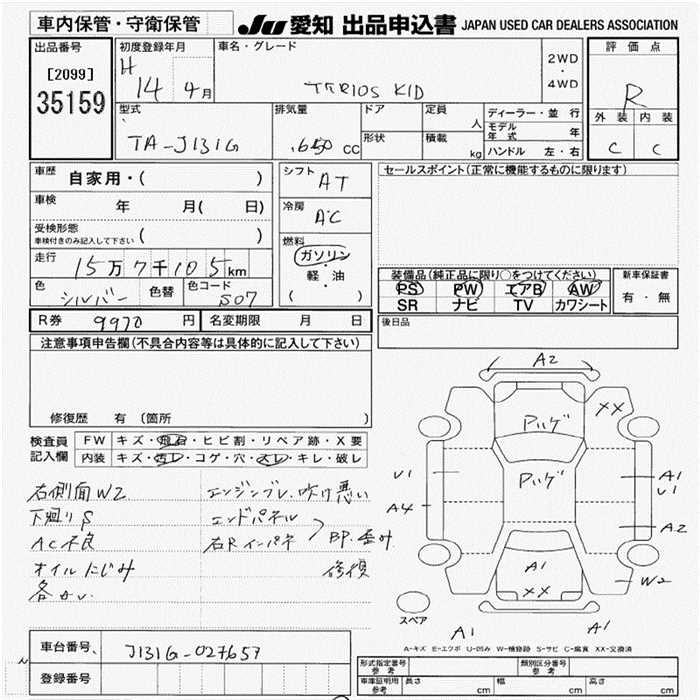 車内保管・守衛保管
JU 愛知 出品申込書 JAPAN USED CAR DEALERS ASSOCIATION
出品番号
[2099]
35159
初度登録年月
H 14 4月
車名・グレード
TERIOS KID
2WD
・
4WD
評価点
R
外装 内装
C C
型式
TA-J131G
排気量
650 cc
ドア
形状
定員
人
積載
kg
ディーラー・並行
モデル年式 年
ハンドル 左・右
車歴
自家用・( )
車検
年 月( 日)
受検形態
車検付きのみ記入して下さい ( )
走行
15万7千105km
色
シルバー
色替
色コード
S07
シフト
AT
冷房
AC
燃料
ガソリン
・
軽・油
( )
セールスポイント(正常に機能するものに限ります)
装備品(純正品に限り○をつけてください)
PS PW エアB AW
SR ナビ TV カワシート
新車保証書
有・無
後日品
R券 9970 円
名変期限 月 日
注意事項申告欄(不具合内容等は具体的に記入して下さい)
修復歴 有 (箇所 )
検査員
記入欄
FW キズ・飛石・ヒビ割・リペア跡・X要
内装 キズ・汚レ・コゲ・穴・スレ・キレ・破レ
右側面W2
下廻りS
AC不良
オイルにじみ
エンジンブレ、吹け悪い
エンドパネル
右Rインパネ
BP.歪み
修復
A2
XX
Pハゲ
Pハゲ
U1
A4
A1
U1
A2
W2
A1
XX
A1
A1
スペア
A-キズ E-エクボ U-凹み W-補修跡 S-サビ C-腐食 XX-交換済
車台番号
J131G-027657
登録番号
形式指定番号
参考
類別区分番号
参考
車庫証明用
参考
長さ cm
幅 cm
高さ cm